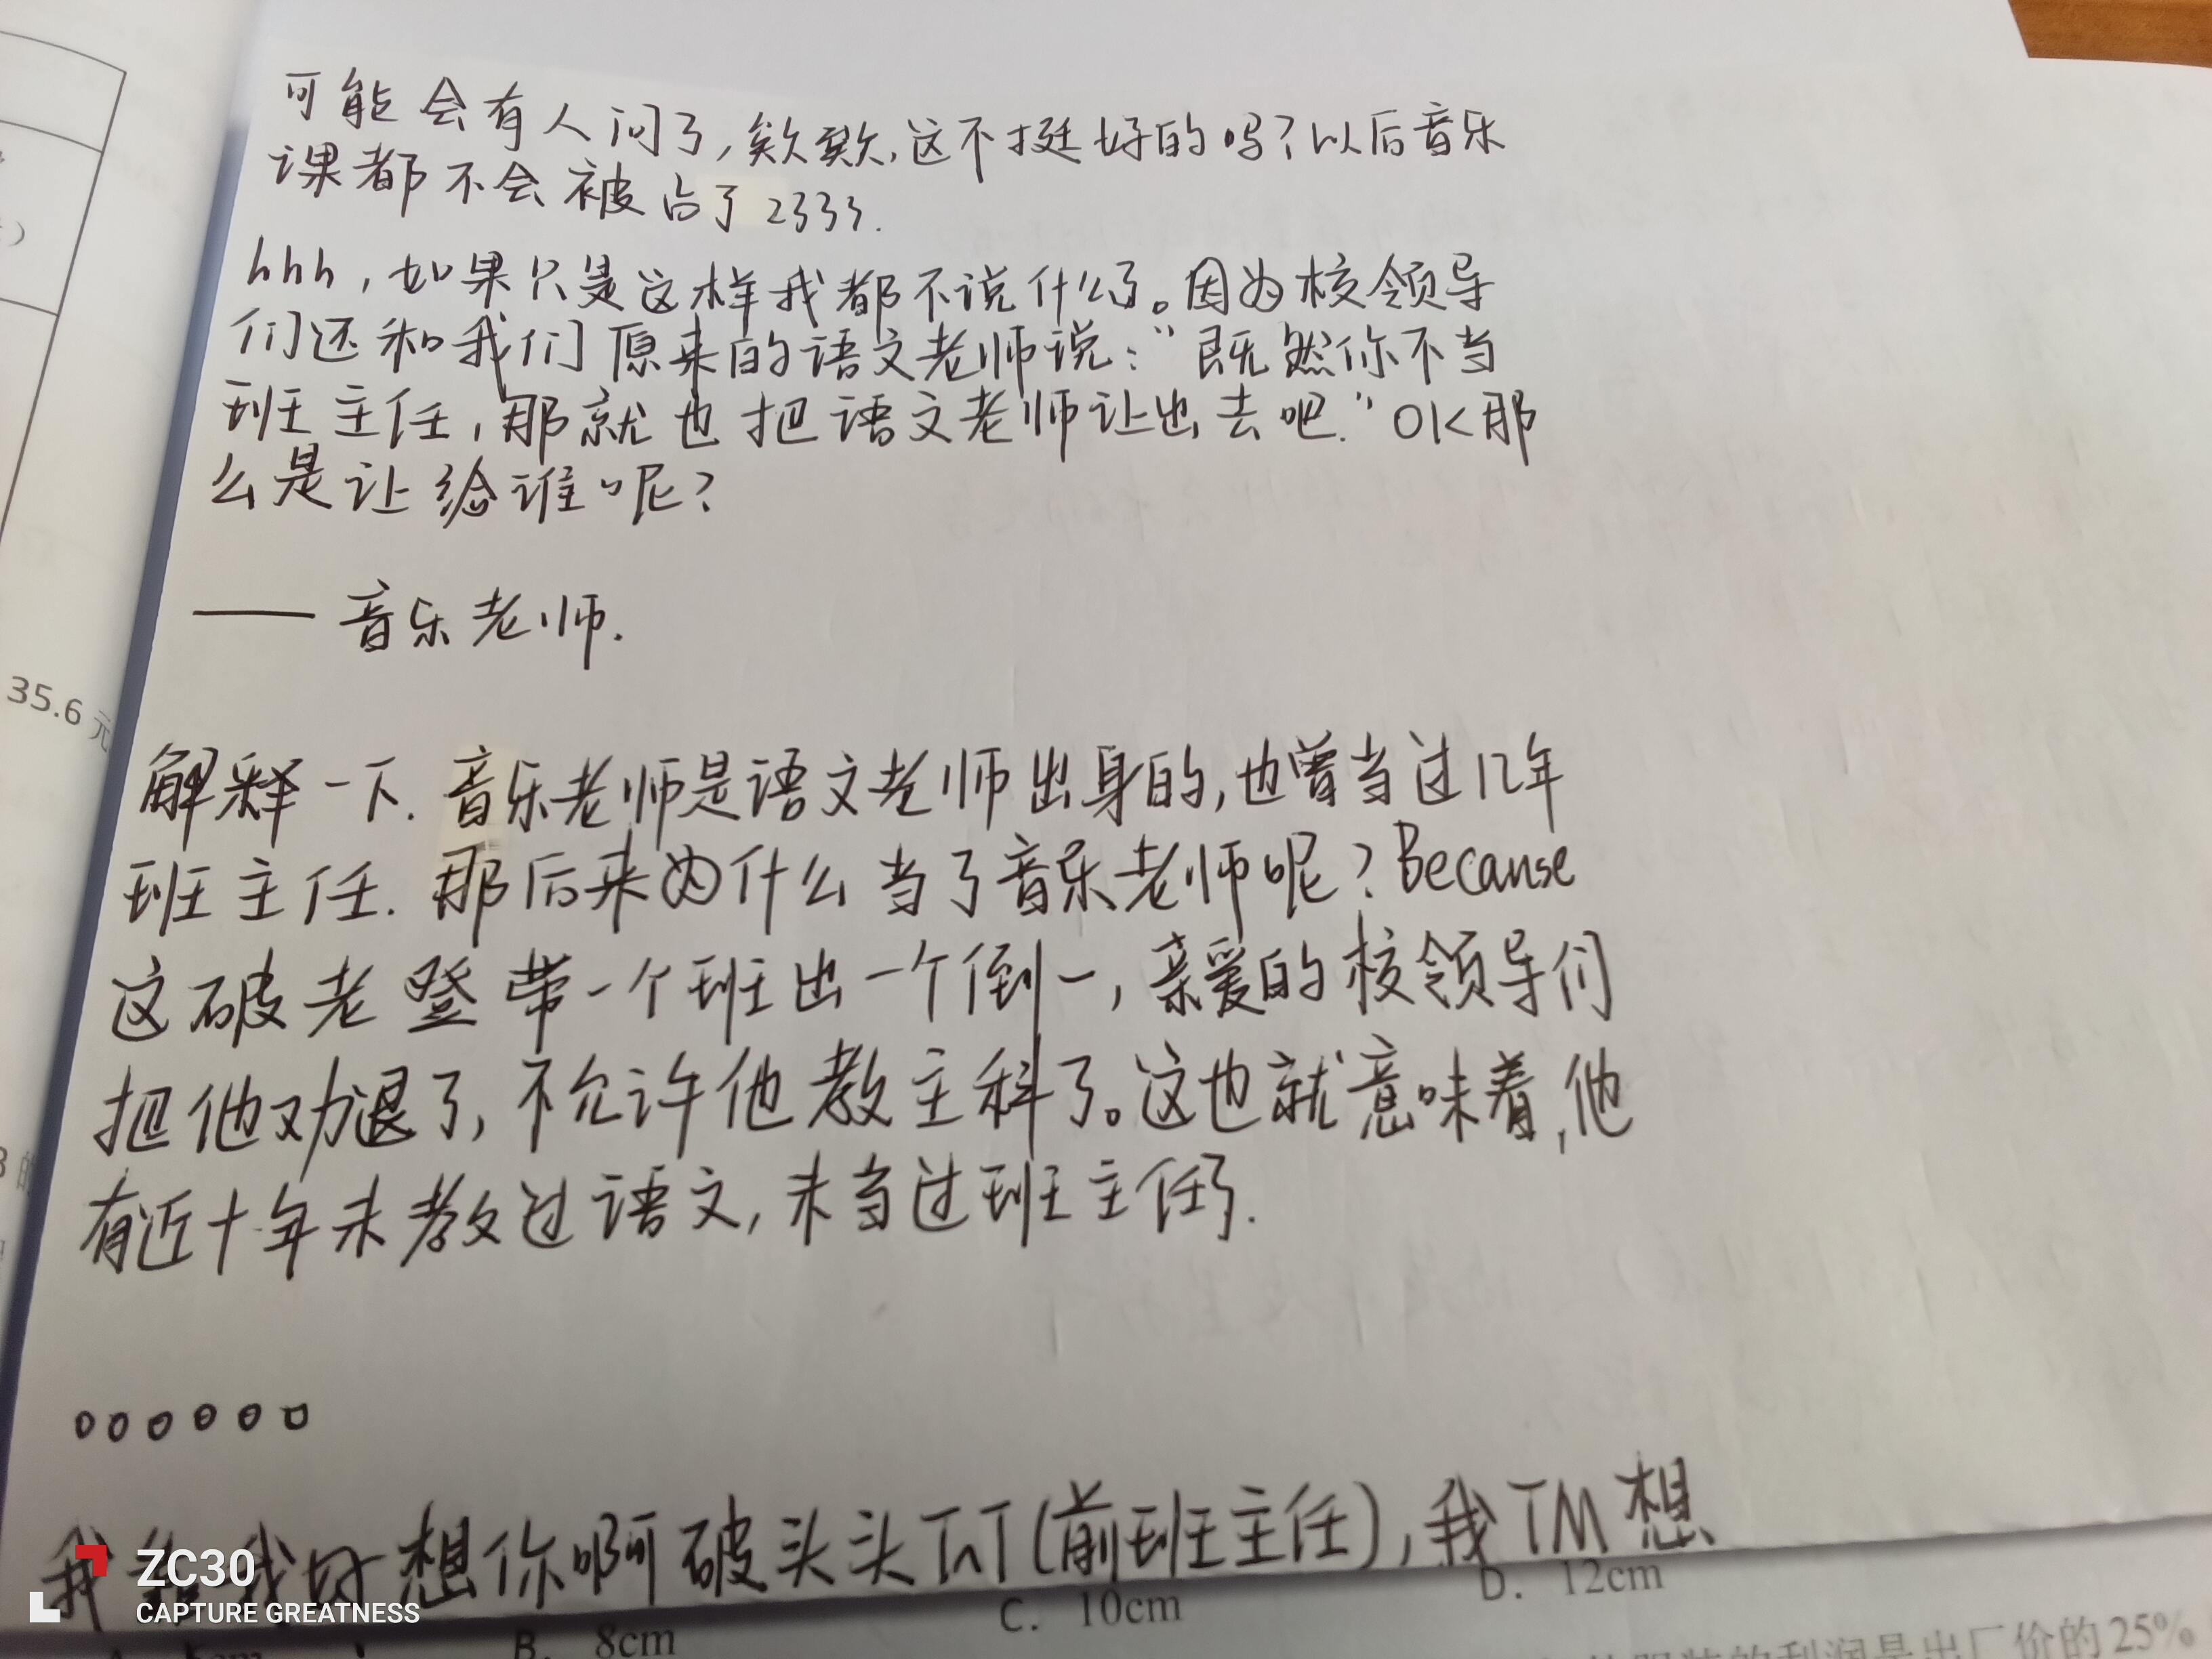 可能会有人问了,欸欸,这不挺好的吗?以后音乐
课都不会被占了2333.
hhh,如果只是这样我都不说什么了。因为校领导
们还和我们原来的语文老师说:“既然你不当
班主任,那就也把语文老师让出去吧.”OK那
么是让给谁呢?
——音乐老师.
解释一下.音乐老师是语文老师出身的,也曾当过几年
班主任.那后来为什么当了音乐老师呢?Because
这破老登带一个班出一个倒一,亲爱的校领导们
把他劝退了,不允许他教主科了。这也就意味着,他
有近十年未教过语文,未当过班主任了.
。。。。。。
我 我好想你啊破头头TnT(前班主任),我TM想
ZC30
CAPTURE GREATNESS
35.6元
B. 8cm
C. 10cm
D. 12cm
的利润是出厂价的25%